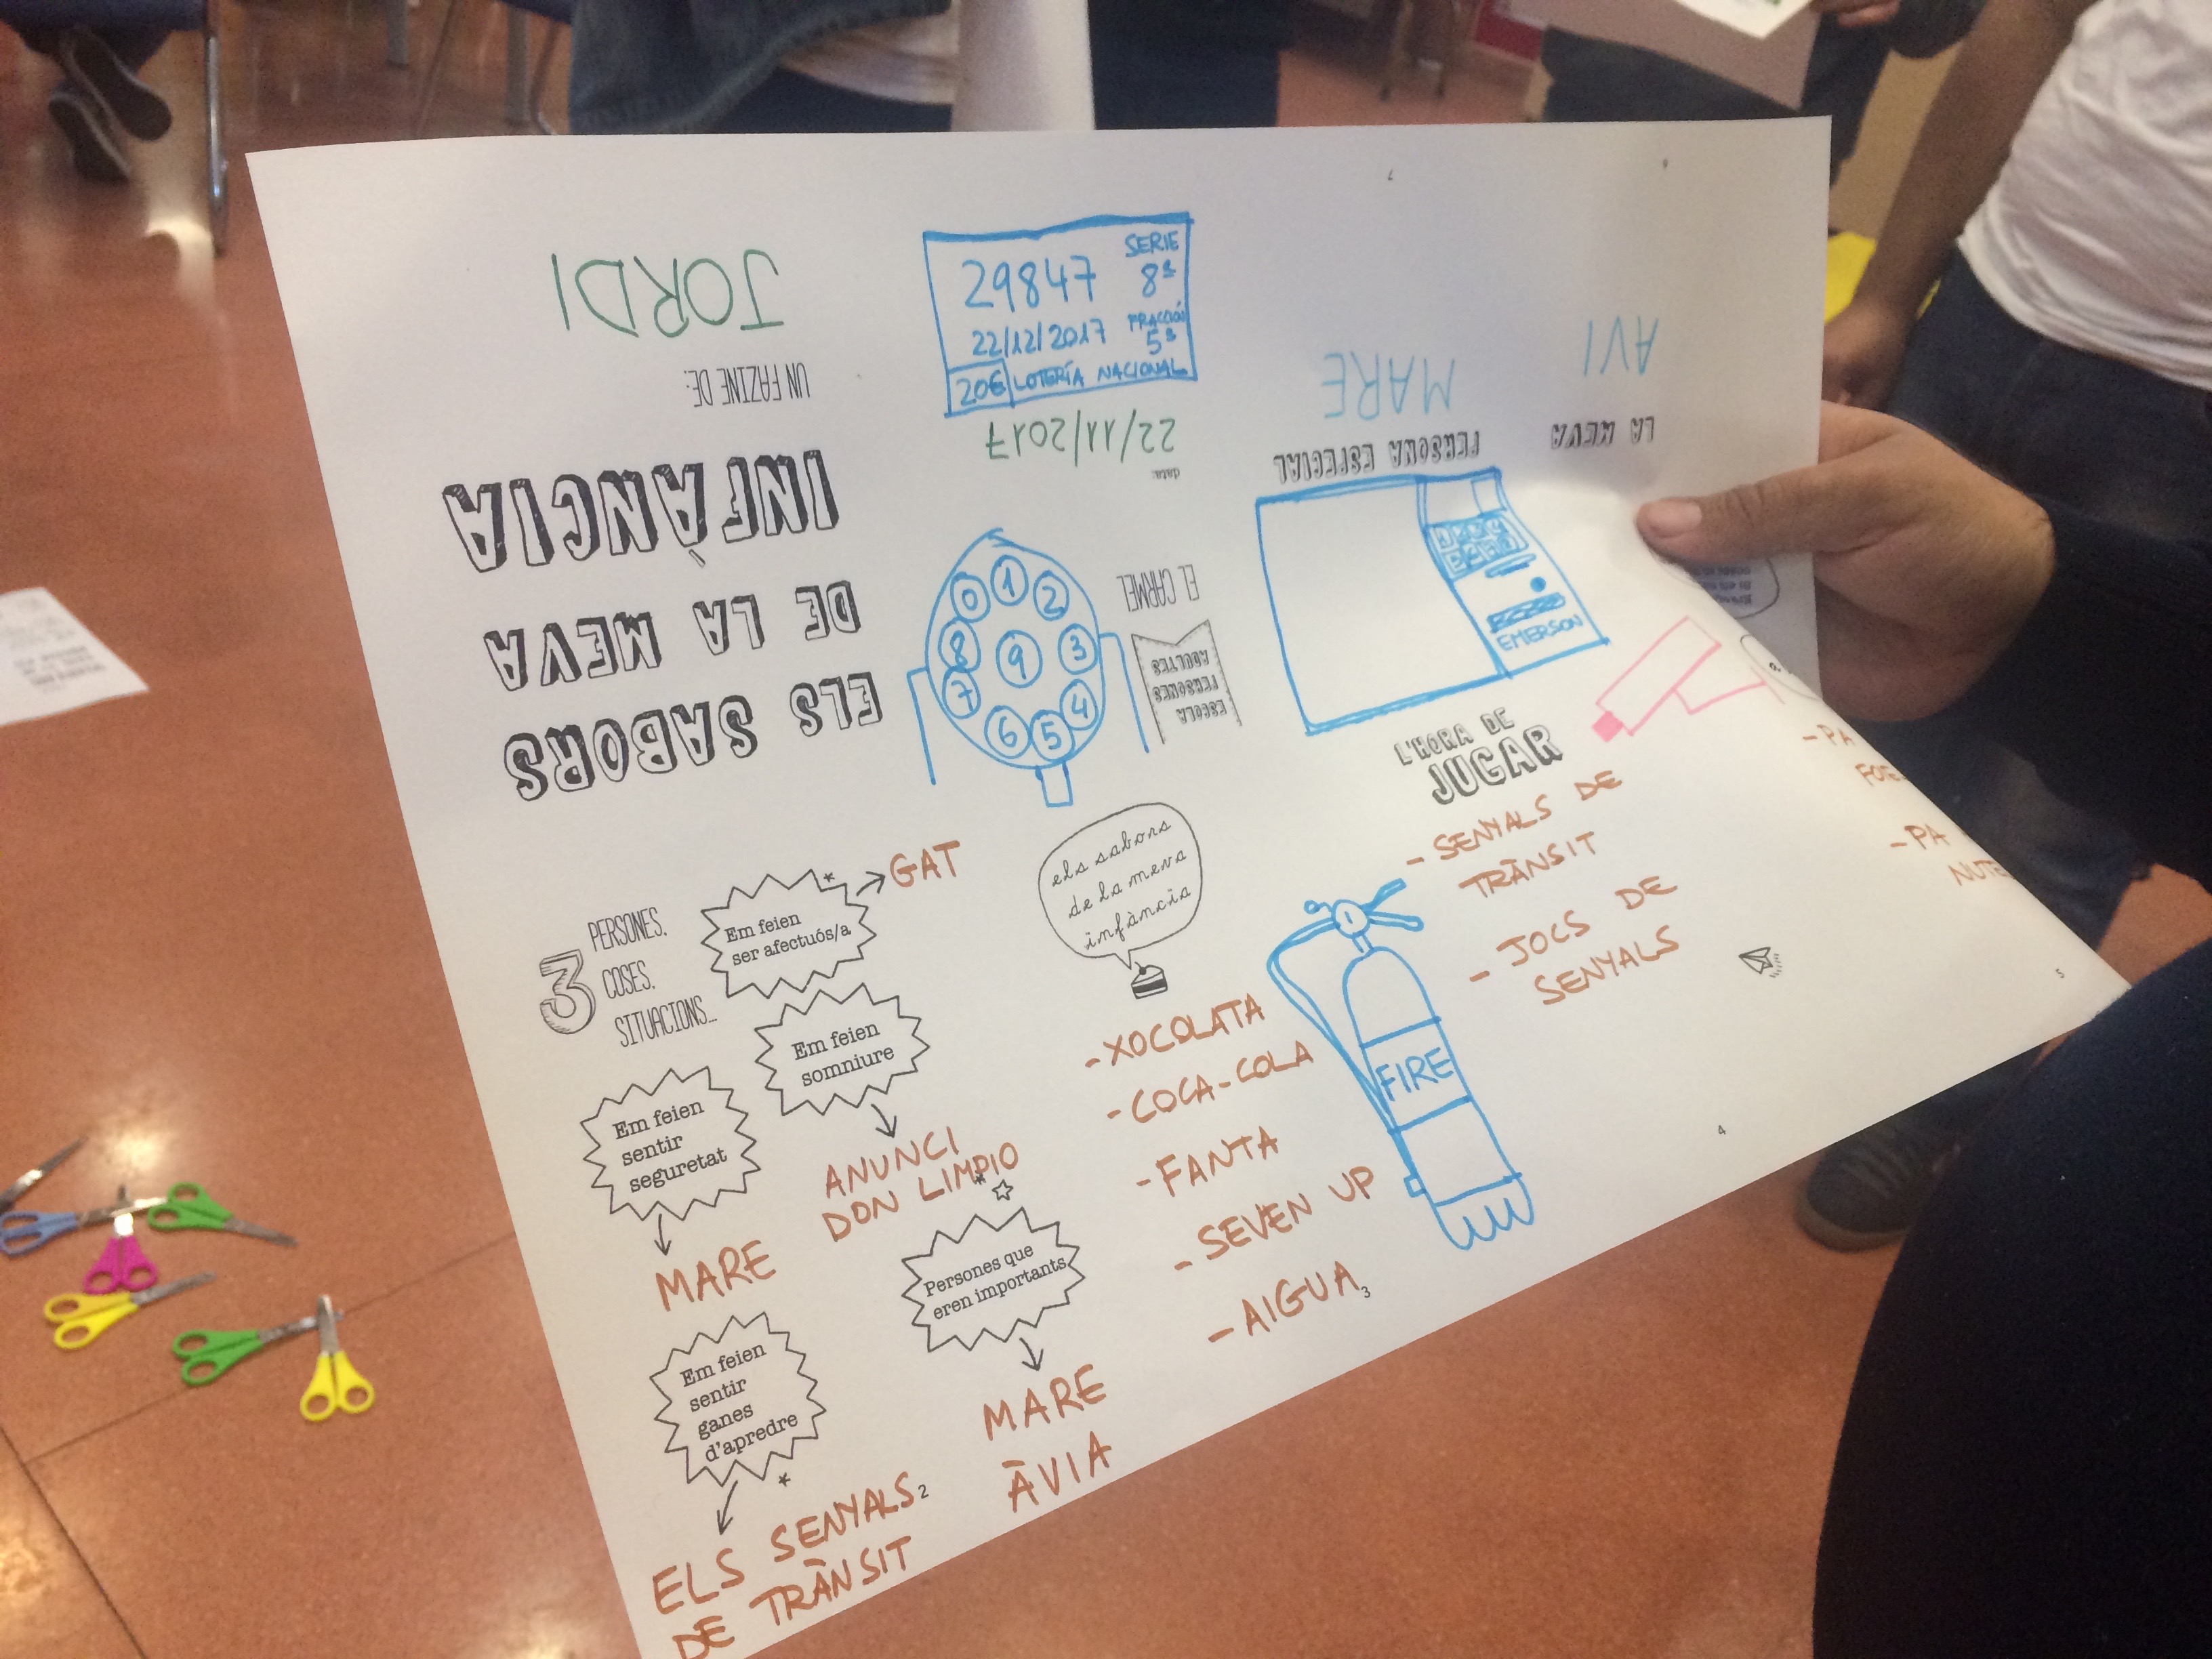 ELS SABORS
DE LA MEVA
INFÀNCIA
UN FAZINE DE:
JORDI
SERIE
29847 8ª
22/12/2017 FRACCIÓN
5ª
20€ LOTERÍA NACIONAL
data:
22/11/2017
0 1 2
8 9 3
7 4
6 5
ESCOLA
PERSONES
ADULTES
EL CARMEL
7
PERSONA ESPECIAL
MARE
EMERSON
6
LA MEVA
AVI
3 PERSONES,
COSES,
SITUACIONS...
Em feien
ser afectuós/a
GAT
Em feien
somniure
ANUNCI
DON LIMPIO
Em feien
sentir
seguretat
MARE
Persones que
eren importants
MARE
ÀVIA
Em feien
sentir
ganes
d'apredre
ELS SENYALS
DE TRÀNSIT
2
els sabors
de la meva
infància
- XOCOLATA
- COCA-COLA
- FANTA
- SEVEN UP
- AIGUA
3
L'HORA DE
JUGAR
- SENYALS DE
TRÀNSIT
- JOCS DE
SENYALS
FIRE
4
- PA
- PA
5